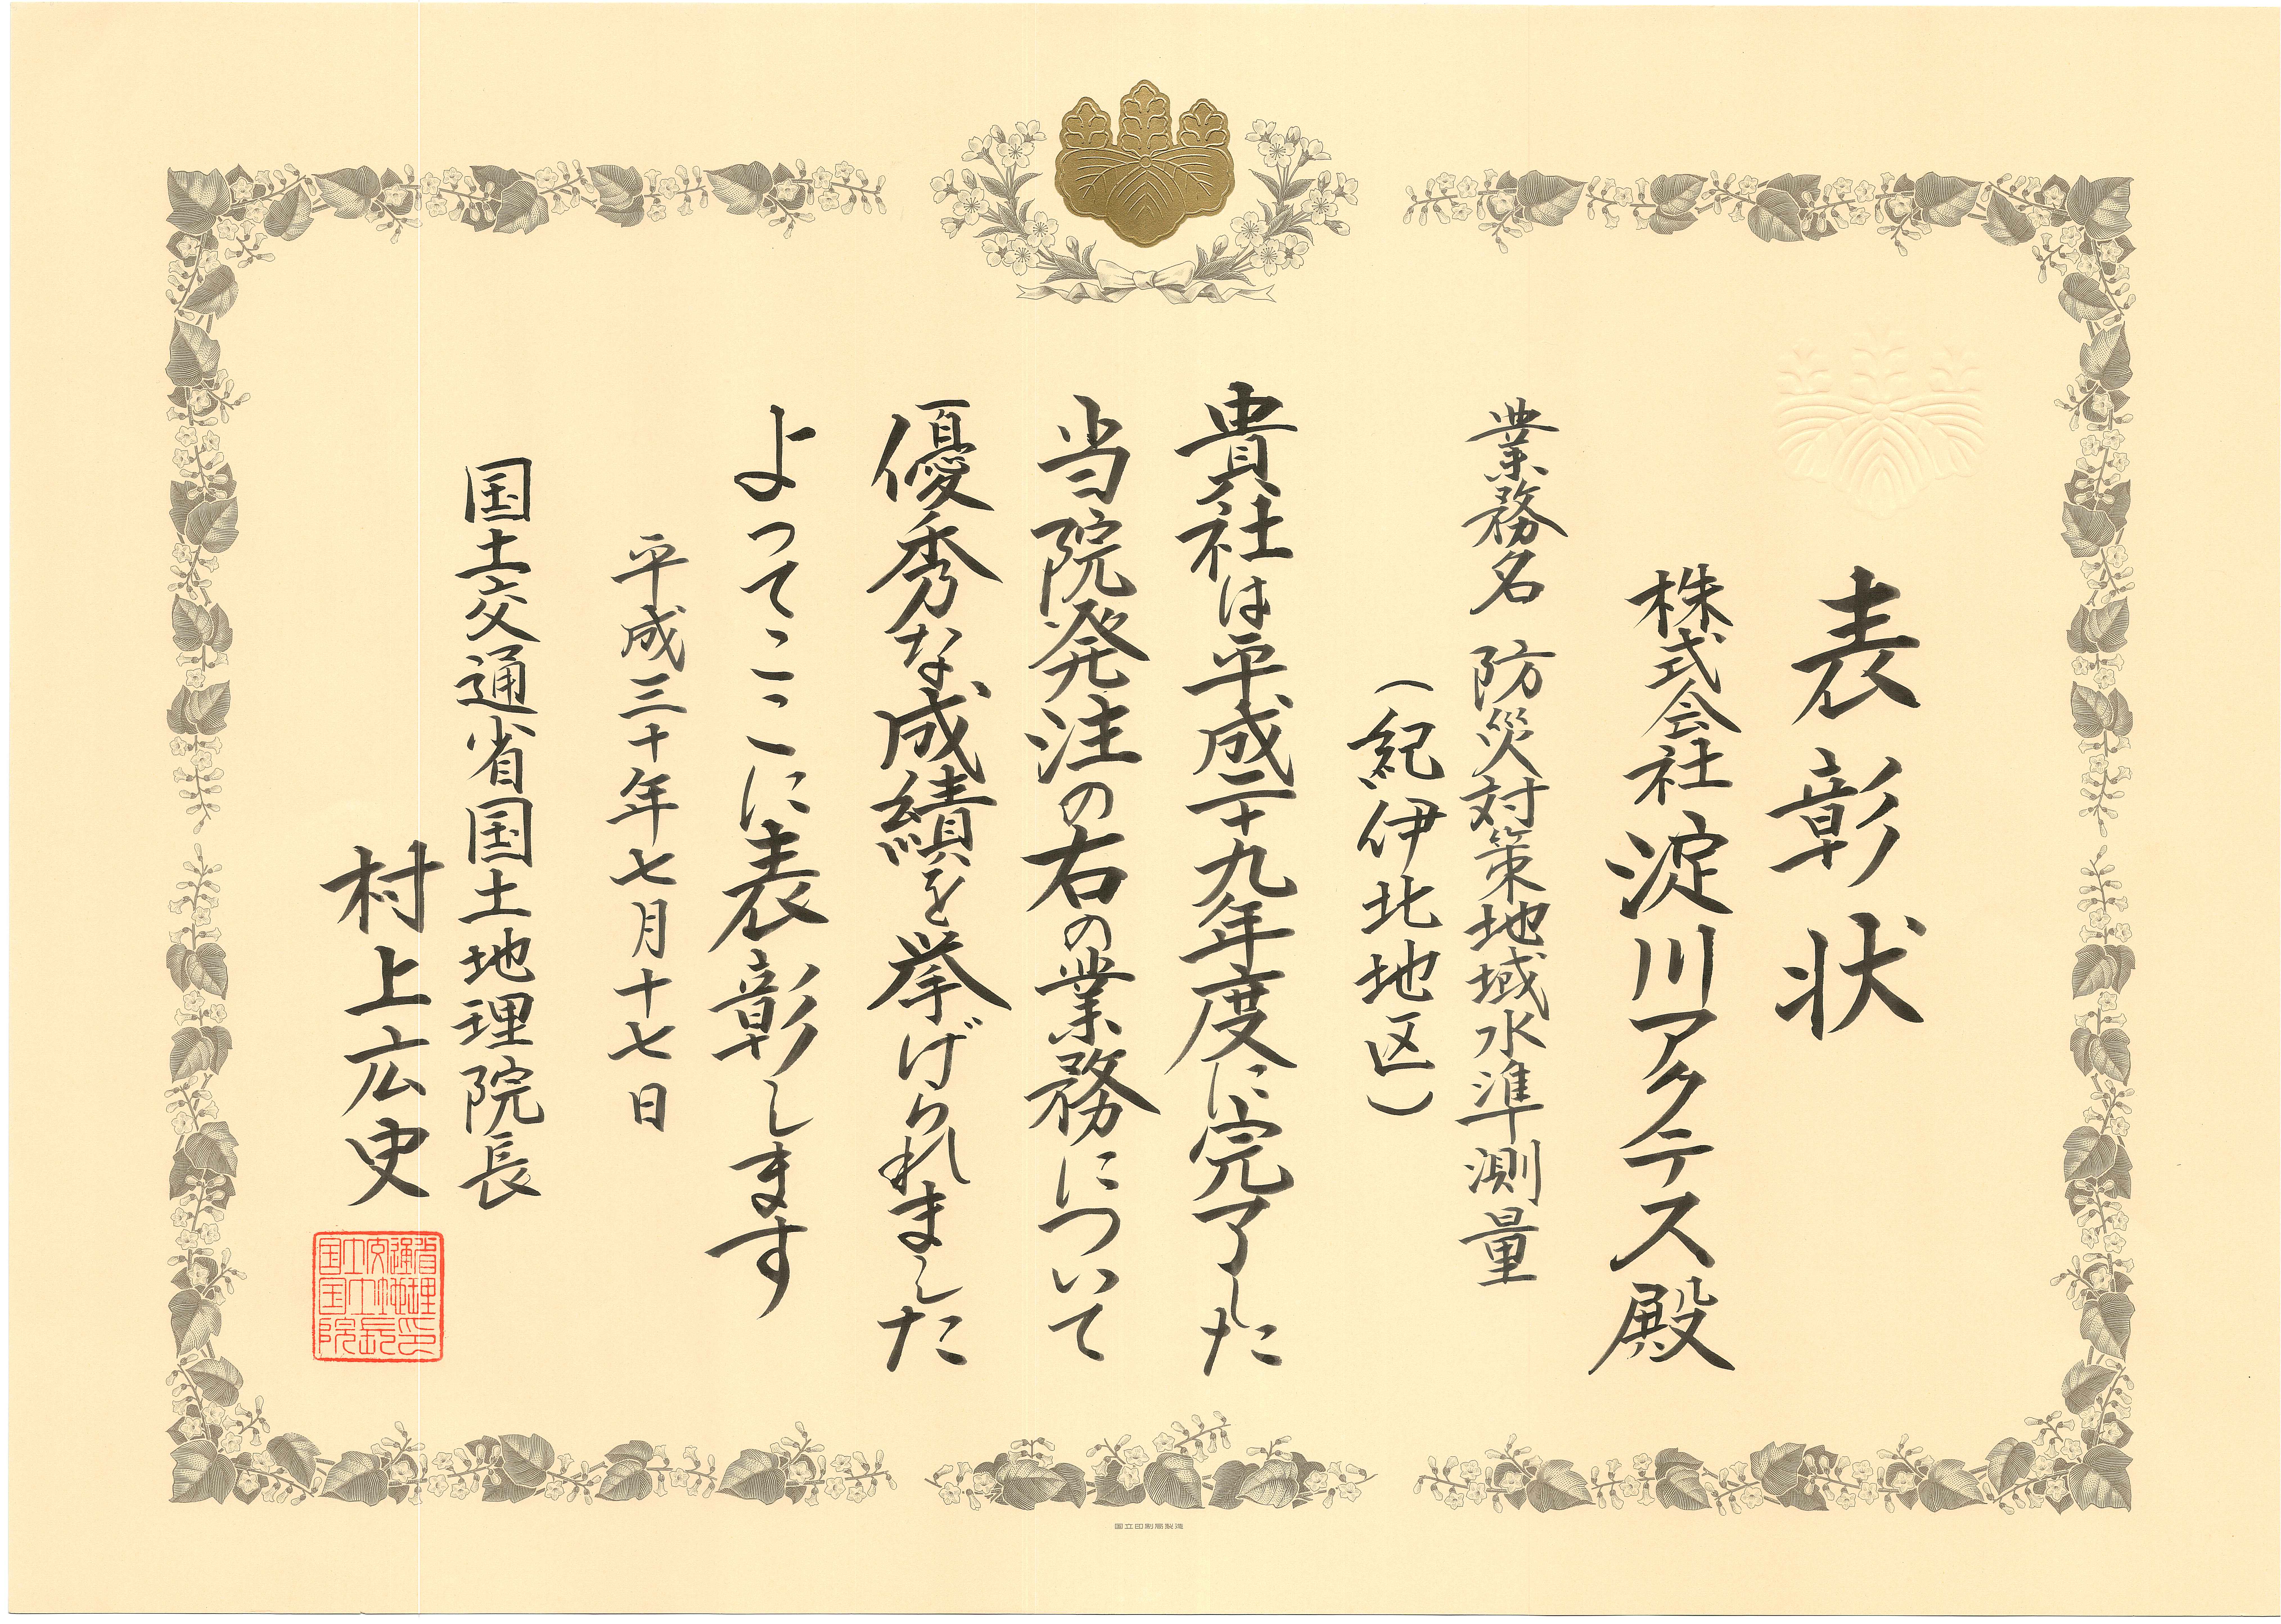 表彰状
株式会社淀川アクテス殿
業務名 防災対策地域水準測量
（紀伊北地区）
貴社は平成二十九年度に完了した
当院発注の右の業務について
優秀な成績を挙げられました
よってここに表彰します
平成三十年七月十七日
国土交通省国土地理院長
村上広史
国土交通省
国土地理
院長之印
国立印刷局製造